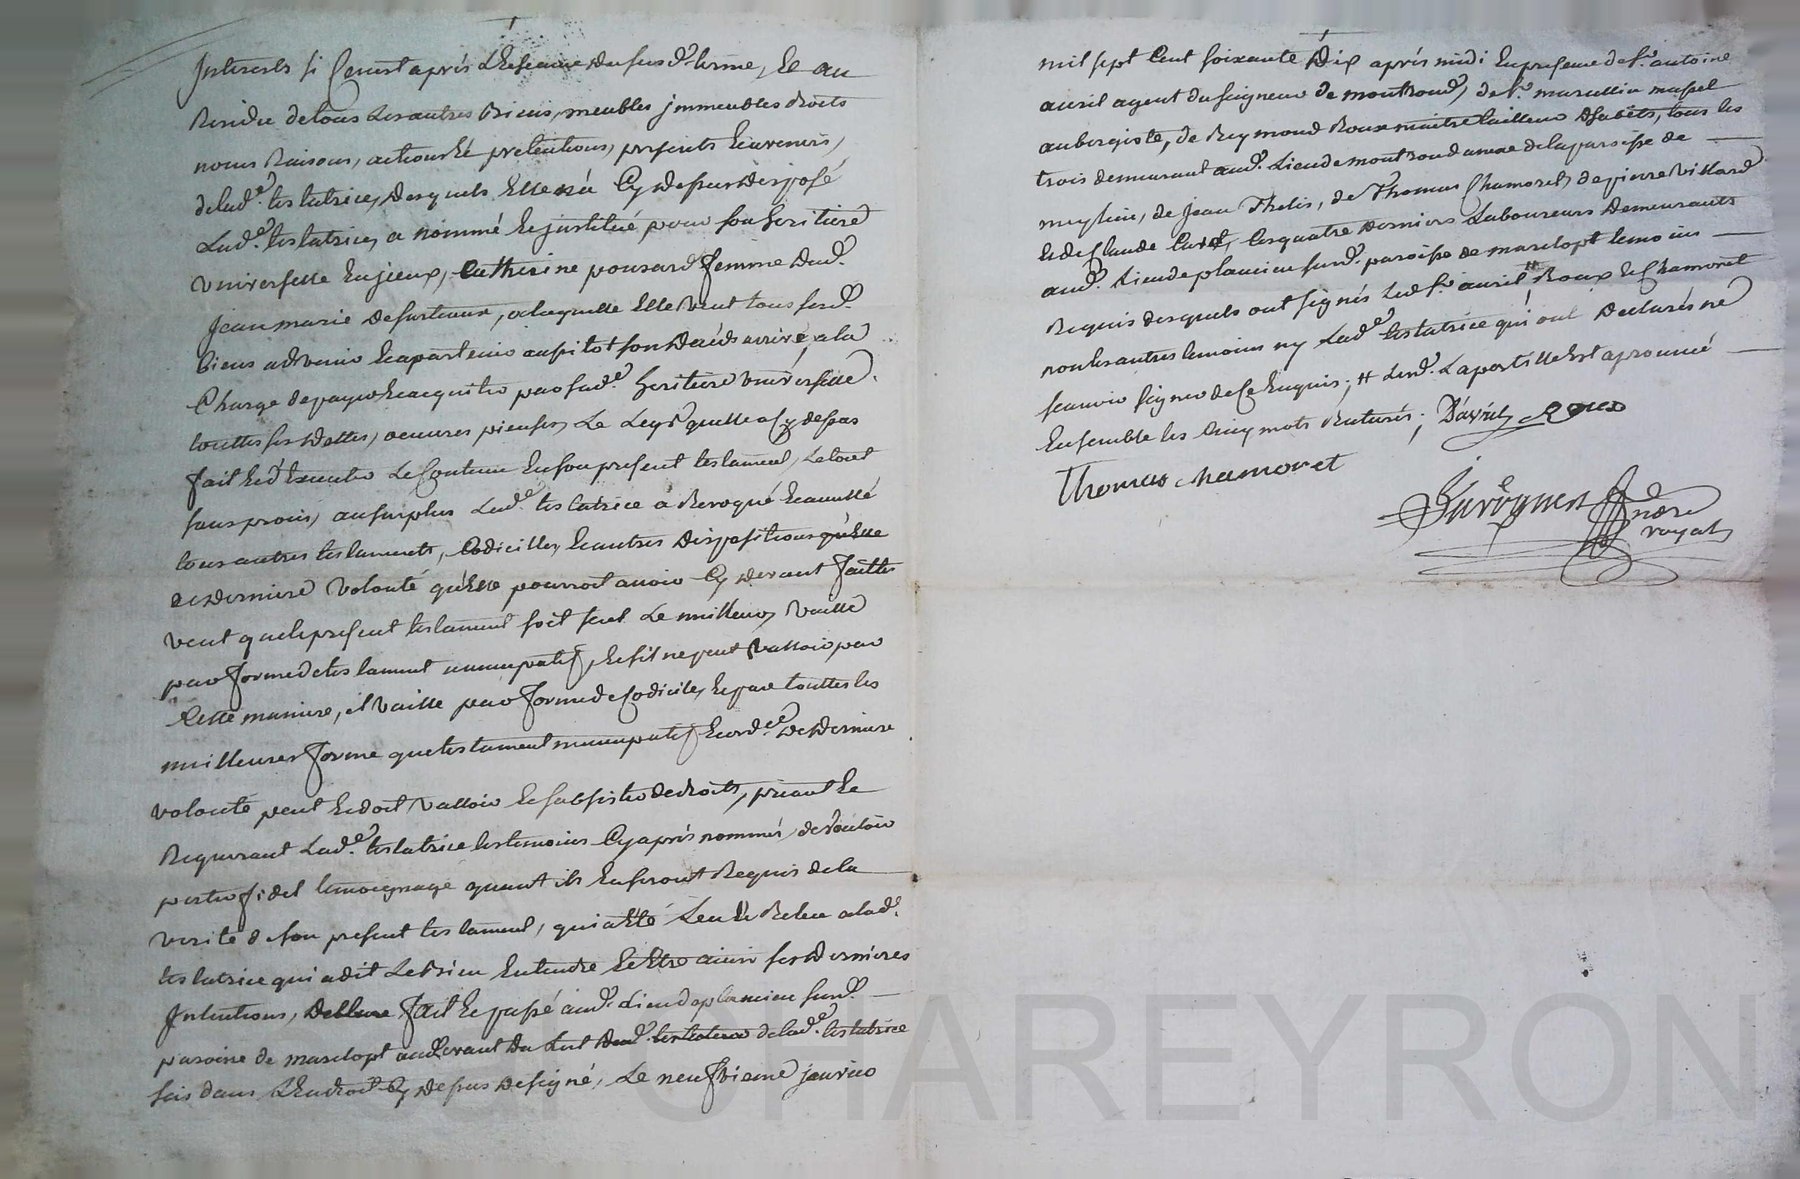 Interests si Ce n'est après L'Echeance dususd. terme, Et au
Residu de tous Les autres Biens, meubles jmmeubles droits
noms Raisons, actions Et pretentions, presents Et avenirs,
de Lad.e testatrice, Desquels Elle n'a Cy dessus Disposé
Lad.e testatrice, a nommé Et jnstitué pour son heritiere
Universelle Catherine ponsard femme Dud.
Jean marie , a laquelle Elle Veut tous sesd.
biens advenir Et apartenir aussitot son Décés arrivé, a la
Charge de payer Et acquitter par sad.e heritiere Universelle
touttes ses Dettes, oeuvres pieuses, Le Legs qu'elle a Cy dessus
fait Et d'Executer Le Contenu En son present testament, Le tout
sans procès, au surplus Lad.e testatrice a Revoqué Et annullé
tous autres testaments, Codicilles, Et autres Dispositions
de Derniere Volonté qu'Elle pourroit avoir Cy devant faittes
veut que le present testament soit seul Le meilleur, Vaille
par forme de testament nuncupatif, Et s'il ne peut Valloir par
Cette maniere, il Vaille par forme de Codicile, Et par touttes les
meilleures forme que testament nuncupatif Et ord.ce De Derniere
volonté peut Et doit Valloir Et subsister de droits, priant Et
Requerant Lad.e testatrice les temoins Cy après nommés, de Vouloir
porter fidel temoignage quant ils En seront Requis de la
verité de son present testament, qui a Eté Leu Et Releu a lad.
testatrice qui a dit Le Bien Entendre Et Etre ainsi ses Dernieres
Intentions, fait Et passé aud. Lieu de plancieu susd.
paroisse de marclopt au Devant Du Lit de lad.e testatrice
sis dans L'Endroit Cy dessus designé, Le neufvieme janvier
mil sept Cent soixante Dix après midi En presence de S.r antoine
avril agent du seigneur de montrond, de S.r marcellin massel
aubergiste, de Reymond Roux maitre tailleur D'habits, tous les
trois demeurant aud. Lieu de montrond annexe de la paroisse de
meylieu, de Jean Thelis, de Thomas Chamoret, de pierre Villard
Et de Claude , Les quatre Derniers Laboureurs Demeurants
aud. Lieu de plancieu susd. paroisse de marclopt temoins
Requis desquels ont signés Led. S.r avril Roux Et Chamoret
non les autres temoins ny Lad.e testatrice qui ont Declarés ne
scavoir signer de Ce Enquis; # Lad. L'apostille Est aprouvée
Ensemble les Cinq mots Raturés; D'avril Roux
Thomas chamoret
nore
royal